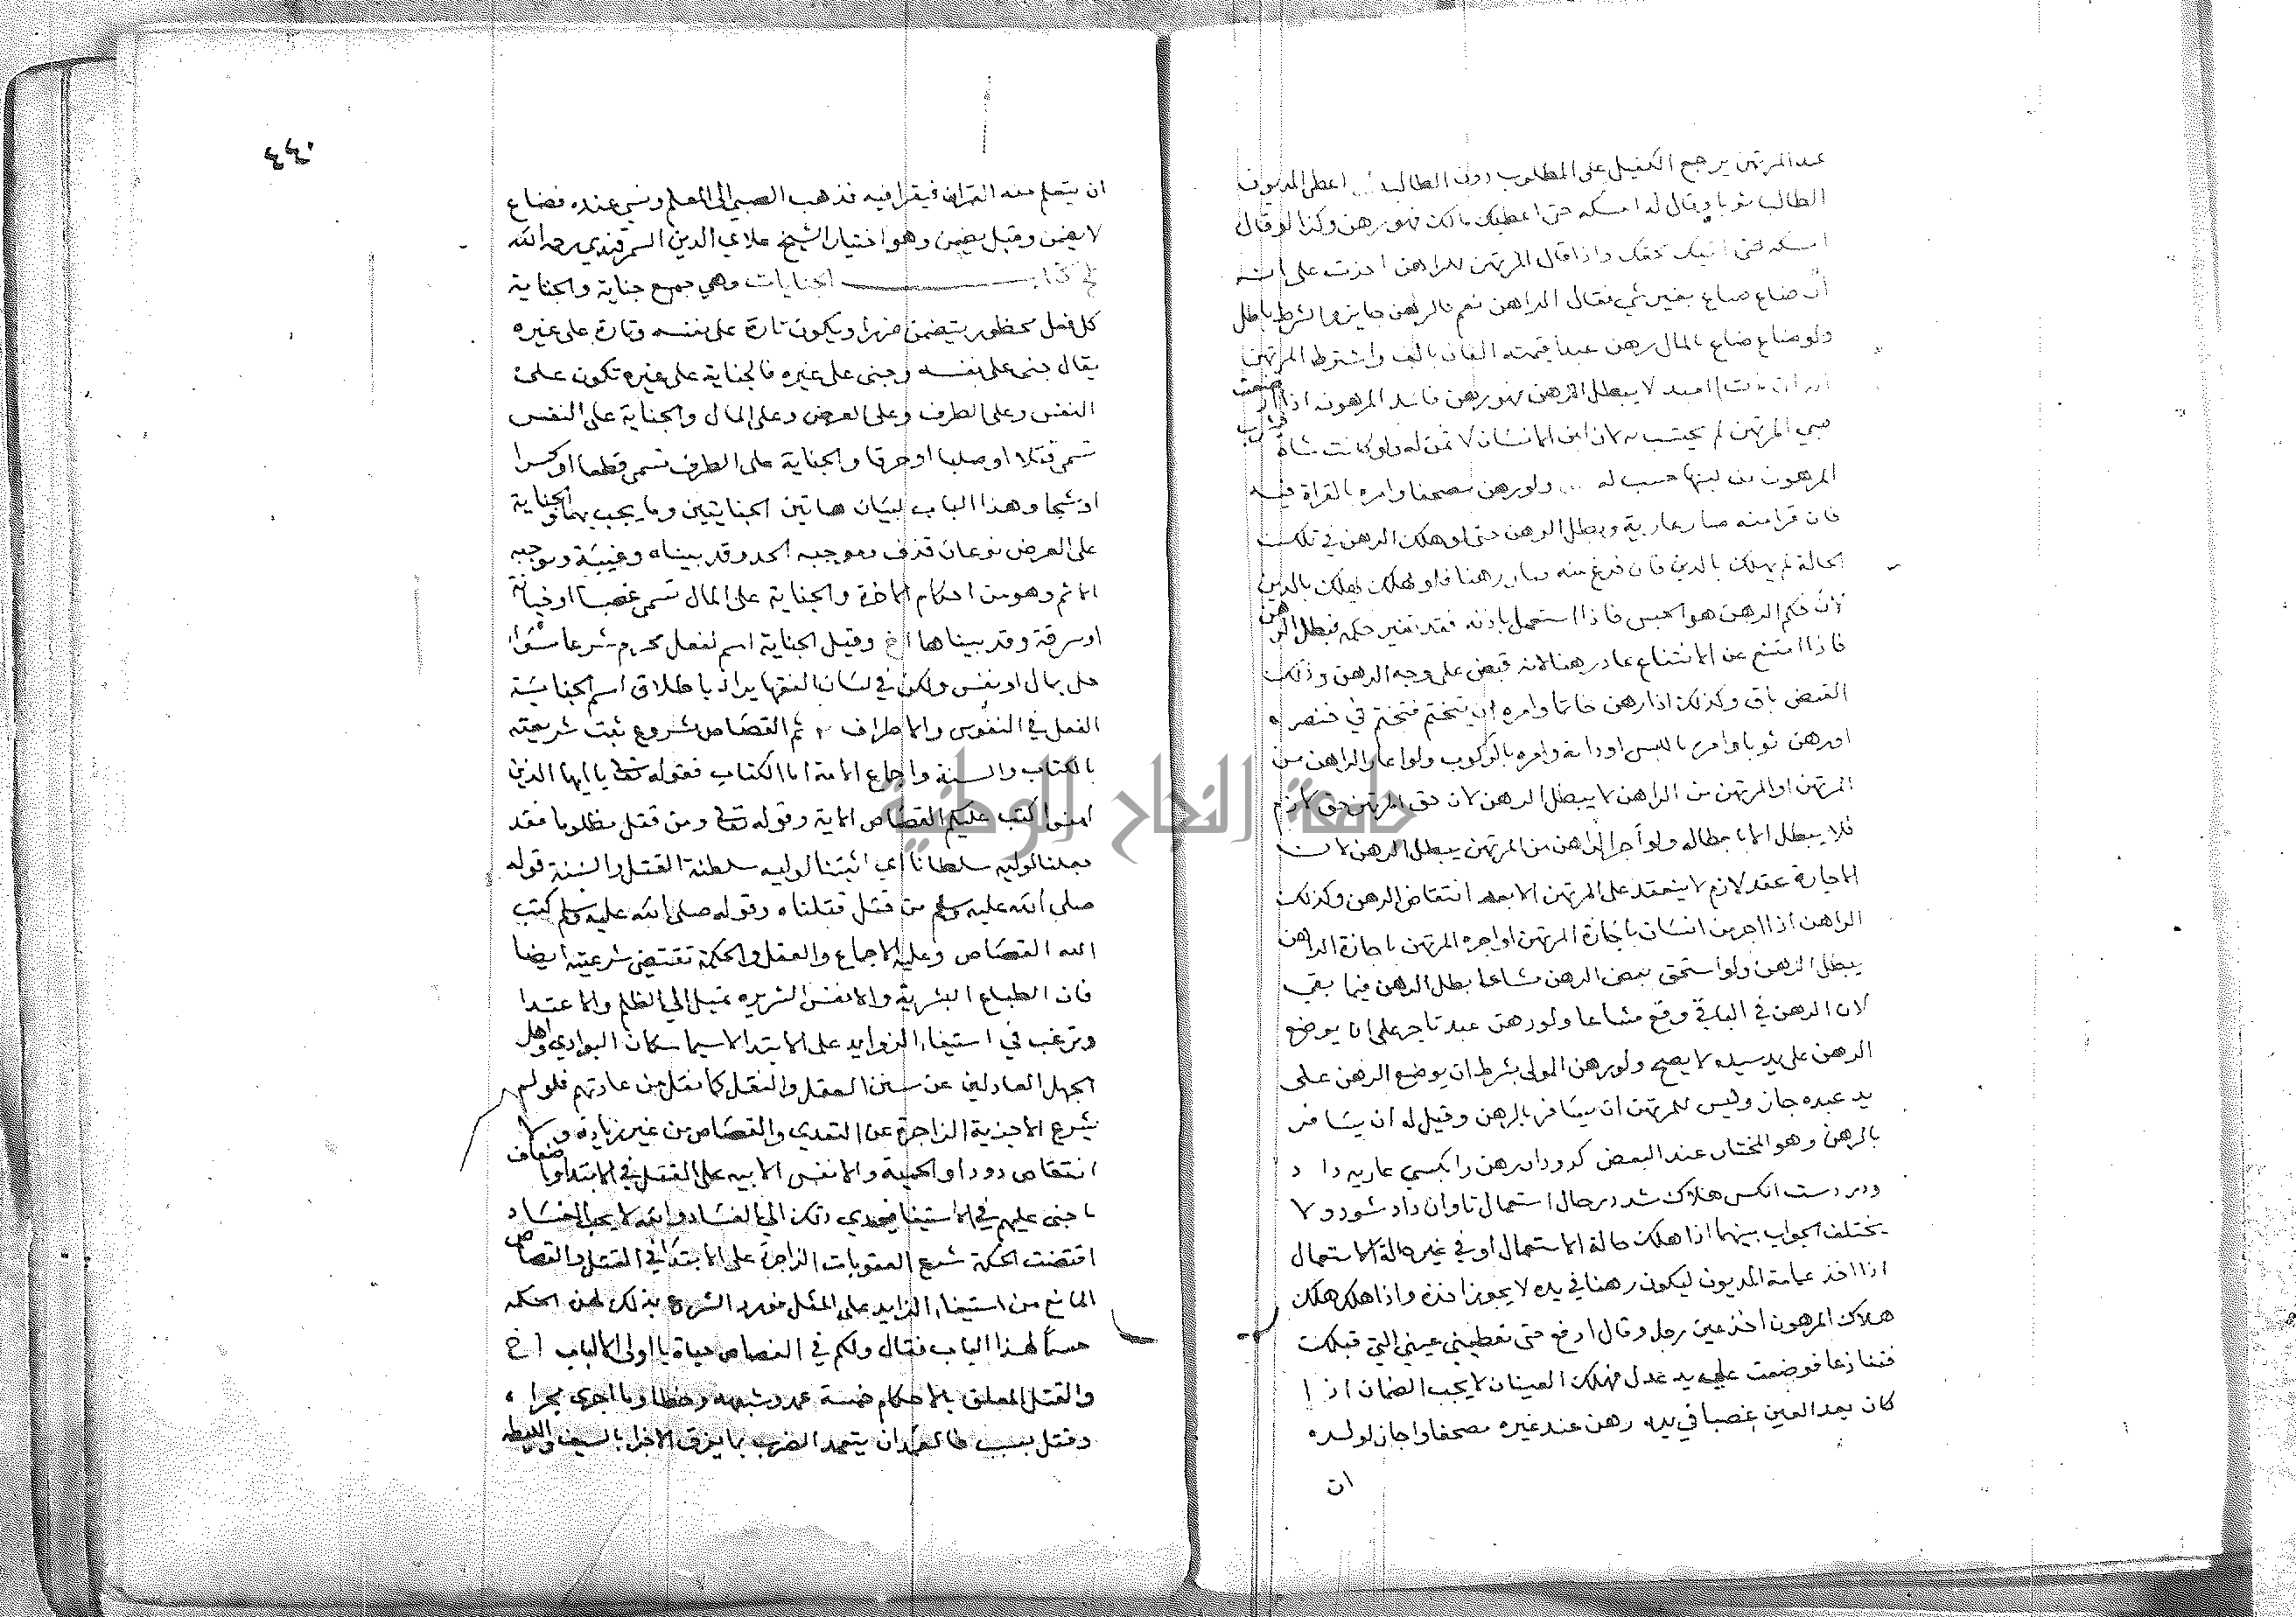 عند المرتهن يرجع الكفيل على المطلوب دون الطالب اعطى المديون
الطالب ثوبا وقال له امسكه حتى اعطيك مالك فهو رهن وكذا لو قال
امسكه حتى اتيك بحقك واذا قال المرتهن للراهن اخذت على انه
ان ضاع ضاع بغير شي فقال الراهن نعم فالرهن جايز والشرط باطل
ولو ضاع ضاع بالمال رهن عبدا قيمته الفان بالف واشترط المرتهن
لا يبطل الرهن فهو رهن فاسد المرهونه اذا ارضعت
صبي المرتهن لم يحتسب به لان لبن الانسان لا ثمن له ولو كانت شاة
المرهون من لبنها حسب له ولو رهن مصحفا وامره بالقراة فيه
فان قرا منه صار عارية وبطل الرهن حتى لو هلك الرهن في تلك
الحالة لم يهلك بالدين فان فرغ منه صار رهنا فلو هلك يهلك بالدين
لان حكم الرهن هو الحبس فاذا استعمل باذنه فقد تغير حكمه فبطل الرهن
فاذا امتنع عن الانتفاع عاد رهنا لانه قبض على وجه الرهن وذلك
القبض باق وكذلك اذا رهن خاتما وامره ان يتختم فتختم في خنصره
او رهن ثوبا وامر باللبس او دابة وامره بالركوب ولو اعار الراهن من
المرتهن او المرتهن من الراهن لا يبطل الرهن لان حق المرتهن حق لازم
فلا يبطل الا بابطاله ولو آجر الراهن من المرتهن يبطل الرهن لان
الاجارة عقد لازم لا ينعقد على المرتهن الا بعد انتقاض الرهن وكذلك
الراهن اذا اجر من انسان باجازة المرتهن او اجره المرتهن باجازة الراهن
يبطل الرهن ولو استحق بعض الرهن مشاعا بطل الرهن فيما بقي
لان الرهن في الباقي وقع مشاعا ولو رهن عبد تاجر على ان يوضع
الرهن على يد سيده لا يصح ولو رهن المولى بشرط ان يوضع الرهن على
يد عبده جاز وليس للمرتهن ان يسافر بالرهن وقيل له ان يسافر
بالرهن وهو المختار عند البعض كرودار رهن را بكسي عاريه داد
ودر دست انكس هلاك شد در حال استعمال تاوان دار شود ولا
يختلف الجواب بينهما اذا هلك حالة الاستعمال او في غير حالة الاستعمال
اذا اخذ عمامة المديون ليكون رهنا في يده لا يجوز اخذه واذا هلك هلك
هلاك المرهون اخذ عين رجل وقال ادفع حتى تعطيني عيني التي قبلك
فتنازعا فوضعت علي يد عدل فهلك العينان لا يجب الضمان اذا
كان بعد العين غصبا في يده رهن عند غيره مصحفا واجاز لولده
ان
٤٤٠
ان يتعلم منه القران فيقرا فيه فذهب الصبي الى المعلم ونسي عنده فضاع
لا يضمن وقيل يضمن وهو اختيار الشيخ علاي الدين السمرقندي رحمه الله
كتاب الجنايات وهي جمع جناية والجناية
كل فعل محظور يتضمن ضررا ويكون تارة على نفسه وتارة على غيره
يقال جنى على نفسه وجنى على غيره فالجناية على غيره تكون على
النفس وعلى الطرف وعلى العرض وعلى المال والجناية على النفس
تسمى قتلا او صلبا او حرقا والجناية على الطرف تسمى قطعا او كسرا
او شجا وهذا الباب لبيان هاتين الجنايتين وما يجب بهما والجناية
على العرض نوعان قذف وموجبه الحد وقد بيناه وغيبة وموجبه
الاثم وهو من احكام الاخرة والجناية على المال تسمى غصبا او خيانة
او سرقة وقد بيناها اخ وقيل الجناية اسم لفعل محرم شرعا سواء
حل بمال او نفس ولكن في لسان الفقها يراد باطلاق اسم الجناية
الفعل في النفوس والاطراف ثم القصاص مشروع ثبت شريعته
بالكتاب والسنة واجماع الامة اما الكتاب فقوله تعالى يا ايها الذين
امنوا كتب عليكم القصاص الاية وقوله تعالى ومن قتل مظلوما فقد
جعلنا لوليه سلطانا اي اثبتنا لوليه سلطنة القتل والسنة قوله
صلى الله عليه وسلم من قتل قتلناه وقوله صلى الله عليه وسلم كتب
الله القصاص وعليه الاجماع والعقل والحكمة تقتضي شرعيته ايضا
فان الطباع البشرية والانفس الشريره تميل الي الظلم والاعتدا
وترغب في استيفاء الزوايد على الابتدا لا سيما سكان البوادي واهل
الجهل العادلين عن سنن العقل والنقل كما نقل من عادتهم فلو لم
يشرع الاجزية الزاجرة عن التعدي والقصاص من غير زيادة ولا
انتقاص دورا والحمية والانفس الابيه على القتل في الابتدا واضعاف
ما جنى عليهم في الاستيفا فيؤدي ذلك الي الفساد والله لا يحب الفساد
اقتضت الحكمة شرع العقوبات الزاجرة على الابتدا في القتل والقصاص
المانع من استيفاء الزايد على المثل فورد الشرع بذلك لهذه الحكمه
حسما لهذا الباب فقال ولكم في القصاص حياة يا اولى الالباب اخ
والقتل المعلق بالاحكام خمسة عمد وشبهه وخطا وما اجري مجراه
وقتل بسبب فالعمد ان يتعمد الضرب بما يفرق الاجزا بالسيف والليطه
جامعة النجاح الوطنية